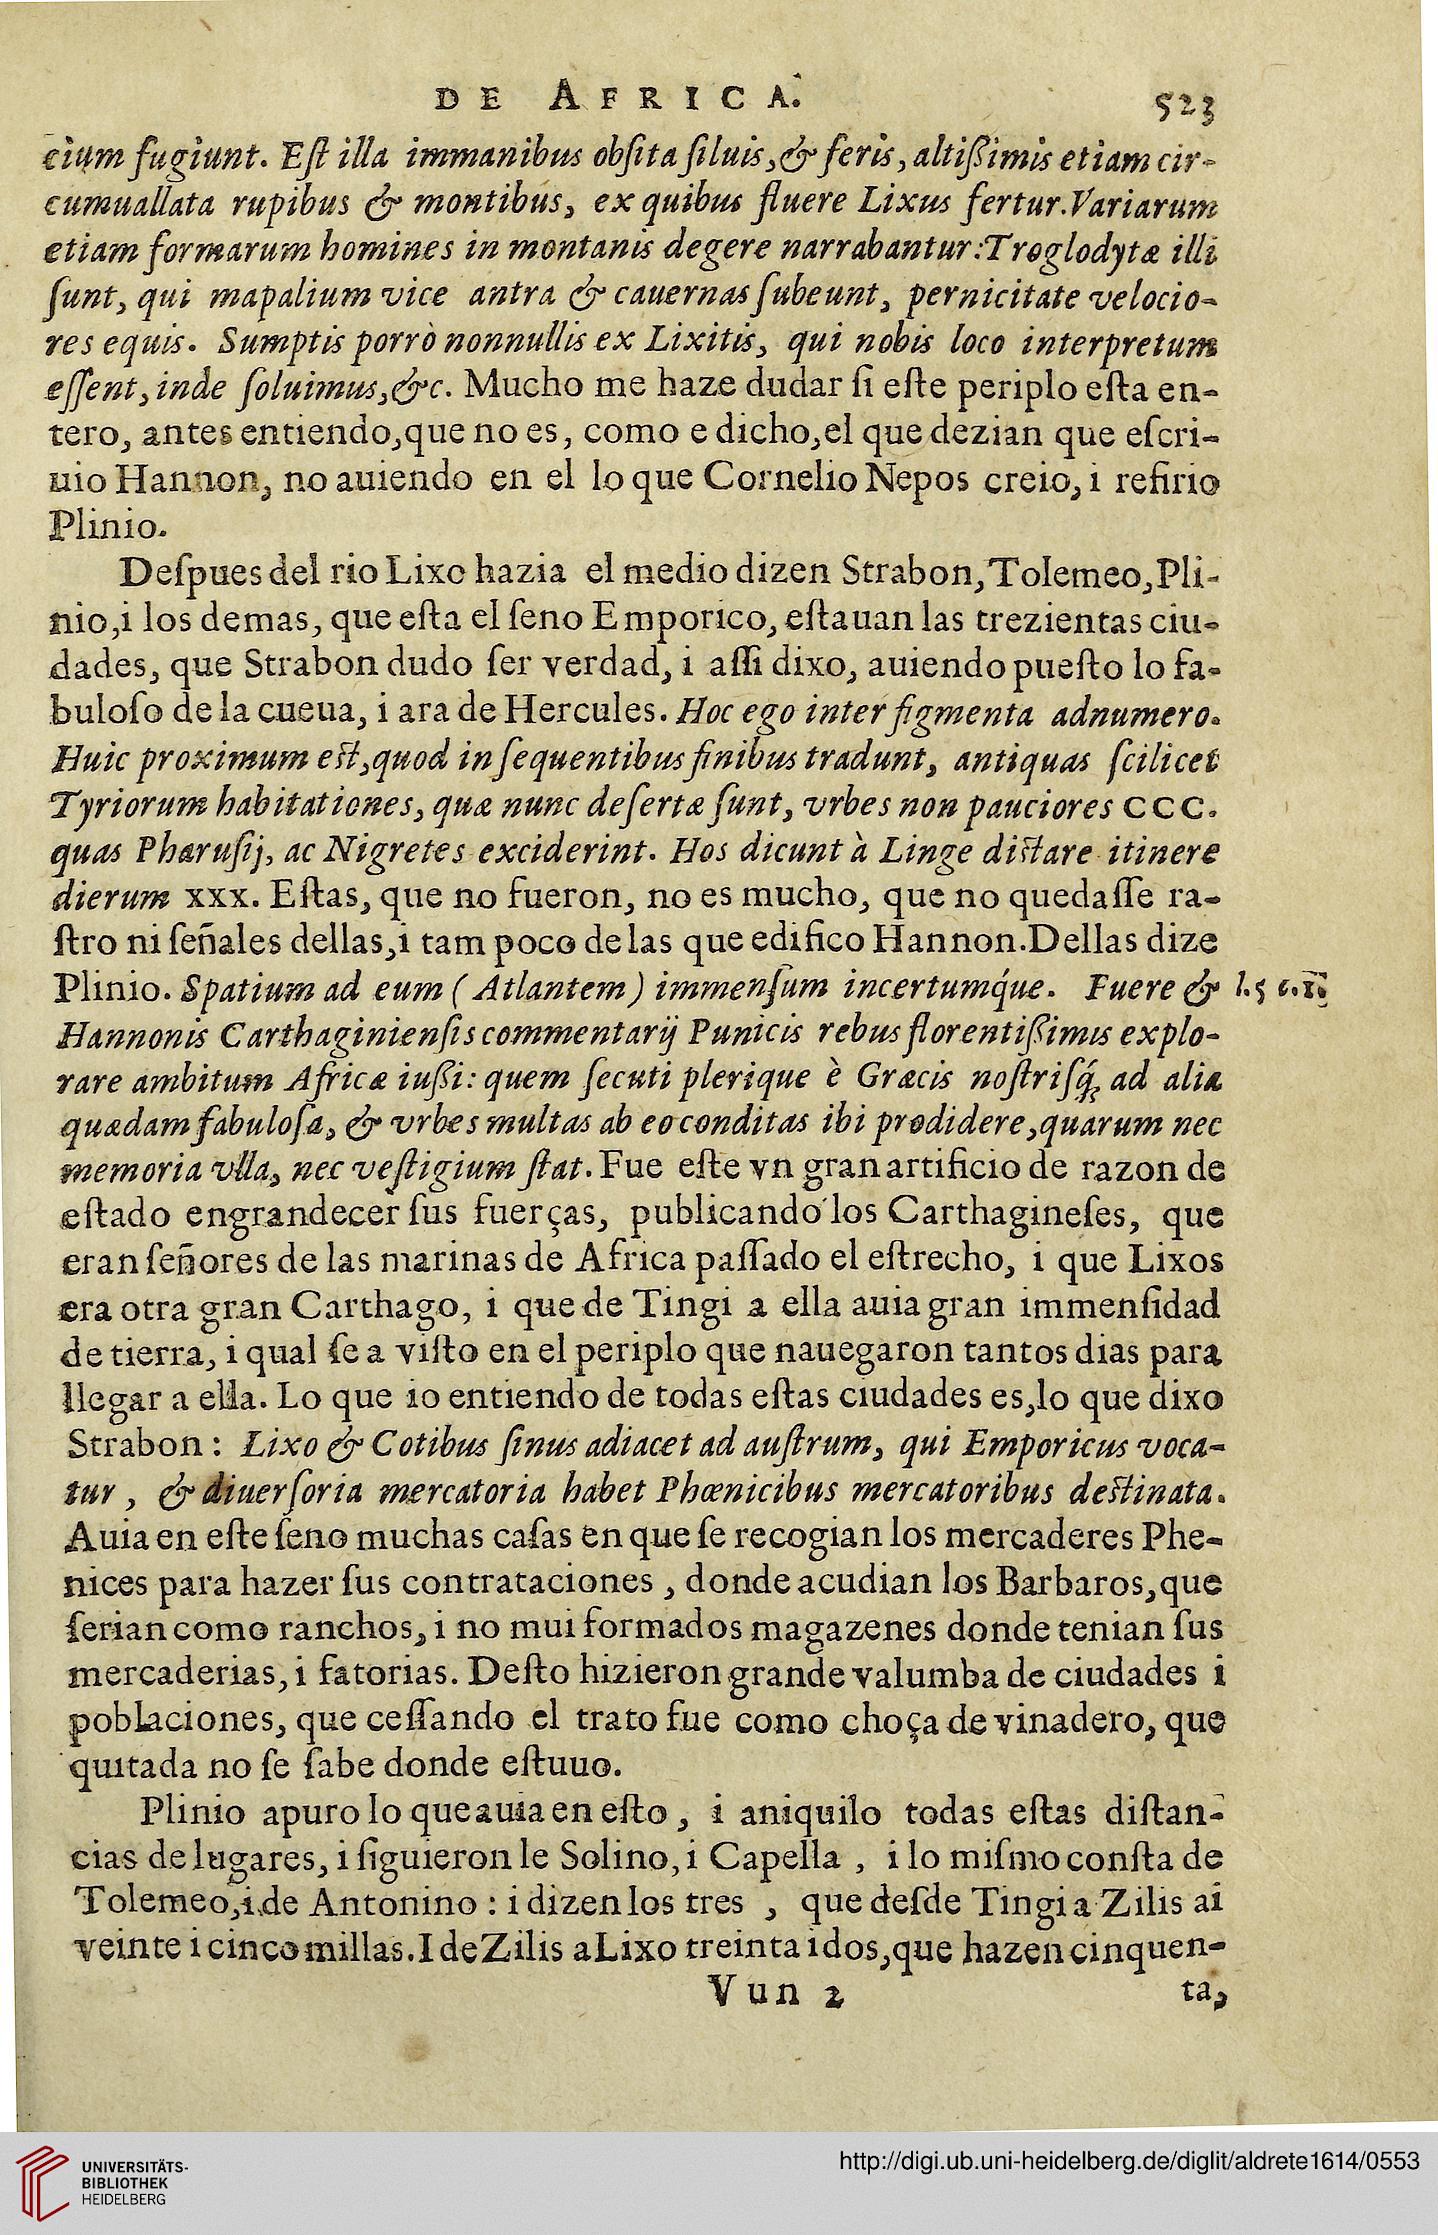 DE AFRICA. 523
cium fugiunt. Eſt illa immanibus obſita ſiluis,& feris, altißimis etiam cir-
cumuallata rupibus & montibus, ex quibus fluere Lixus fertur. Variarum
etiam formarum homines in montanis degere narrabantur: Troglodytæ illi
ſunt, qui mapalium vice antra & cauernas ſubeunt, pernicitate velocio-
res equis. Sumptis porrò nonnullis ex Lixitis, qui nobis loco interpretum
eſſent, inde ſoluimus,&c. Mucho me haze dudar ſi eſte periplo eſta en-
tero, antes entiendo, que no es, como e dicho, el que dezian que eſcri-
uio Hannon, no auiendo en el lo que Cornelio Nepos creio, i refirio
Plinio.
Deſpues del rio Lixo hazia el medio dizen Strabon, Tolemeo, Pli-
nio, i los demas, que eſta el ſeno Emporico, eſtauan las trezientas ciu-
dades, que Strabon dudo ſer verdad, i aſſi dixo, auiendo pueſto lo fa-
buloſo de la cueua, i ara de Hercules. Hoc ego inter figmenta adnumero.
Huic proximum eſt, quod in ſequentibus finibus tradunt, antiquas ſcilicet
Tyriorum habitationes, quæ nunc deſertæ ſunt, vrbes non pauciores CCC.
quas Pharuſij, ac Nigretes exciderint. Hos dicunt à Linge diſtare itinere
dierum xxx. Eſtas, que no fueron, no es mucho, que no quedaſſe ra-
ſtro ni ſeñales dellas, i tam poco de las que edifico Hannon. Dellas dize
Plinio. Spatium ad eum ( Atlantem ) immenſum incertumq́ue. Fuere & l. 5 c. 1.
Hannonis Carthaginienſis commentarij Punicis rebus florentißimis explo-
rare ambitum Africæ iußi: quem ſecuti plerique è Græcis noſtriſq́; ad alia
quædam fabuloſa, & vrbes multas ab eo conditas ibi prodidere, quarum nec
memoria vlla, nec veſtigium ſtat. Fue eſte vn gran artificio de razon de
eſtado engrandecer ſus fuerças, publicando los Carthagineſes, que
eran ſeñores de las marinas de Africa paſſado el eſtrecho, i que Lixos
era otra gran Carthago, i que de Tingi a ella auia gran immenſidad
de tierra, i qual ſe a viſto en el periplo que nauegaron tantos dias para
llegar a ella. Lo que io entiendo de todas eſtas ciudades es, lo que dixo
Strabon: Lixo & Cotibus ſinus adiacet ad auſtrum, qui Emporicus voca-
tur, & diuerſoria mercatoria habet Phœnicibus mercatoribus deſtinata.
Auia en eſte ſeno muchas caſas en que ſe recogian los mercaderes Phe-
nices para hazer ſus contrataciones, donde acudian los Barbaros, que
ſerian como ranchos, i no mui formados magazenes donde tenian ſus
mercaderias, i fatorias. Deſto hizieron grande valumba de ciudades i
poblaciones, que ceſſando el trato fue como choça de vinadero, que
quitada no ſe ſabe donde eſtuuo.
Plinio apuro lo que auia en eſto, i aniquilo todas eſtas diſtan-
cias de lugares, i ſiguieron le Solino, i Capella, i lo miſmo conſta de
Tolemeo, i de Antonino: i dizen los tres, que deſde Tingi a Zilis ai
veinte i cinco millas. I de Zilis a Lixo treinta i dos, que hazen cinquen-
Vun 2 ta,
UNIVERSITÄTS-
BIBLIOTHEK
HEIDELBERG
http://digi.ub.uni-heidelberg.de/diglit/aldrete1614/0553